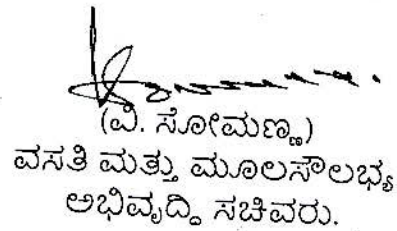 (ವಿ. ಸೋಮಣ್ಣ)
ವಸತಿ ಮತ್ತು ಮೂಲಸೌಲಭ್ಯ
ಅಭಿವೃದ್ಧಿ ಸಚಿವರು.